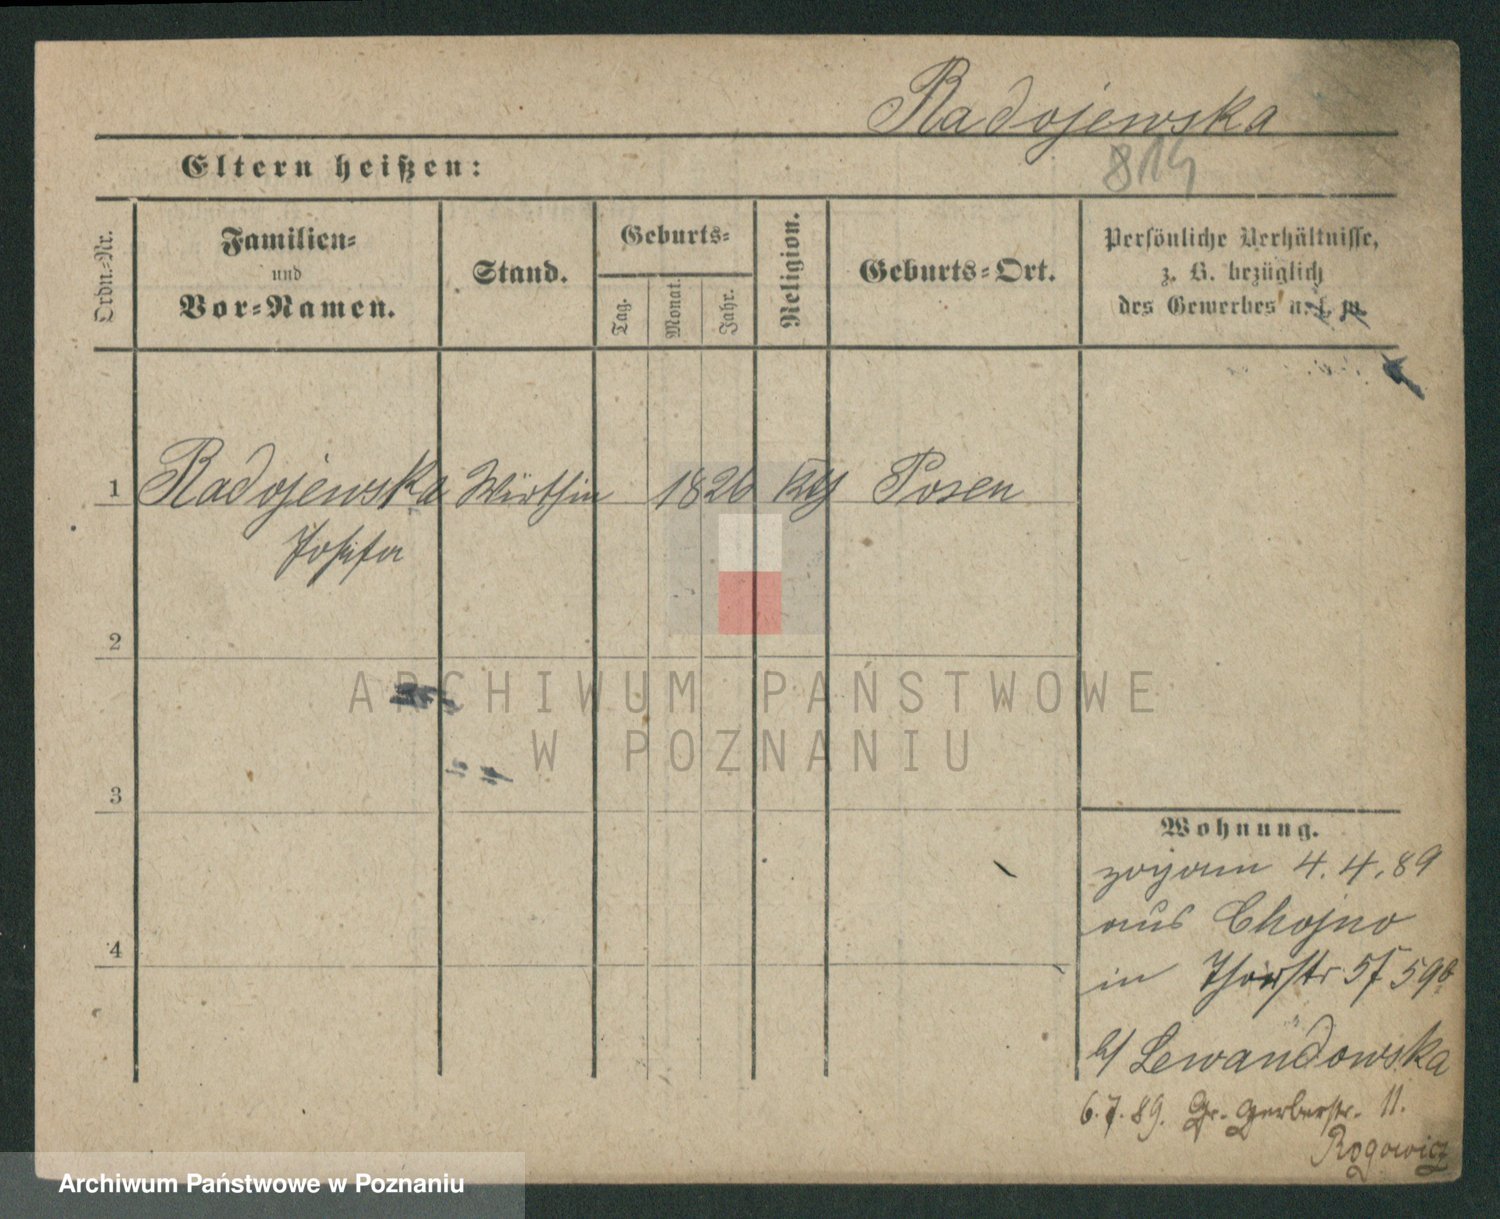 Radojewska
Eltern heißen:
814
Ordn.-Nr.
Familien-
und
Vor-Namen.
Stand.
Geburts-
Tag.
Monat.
Jahr.
Religion.
Geburts-Ort.
Persönliche Verhältnisse,
z. B. bezüglich
des Gewerbes u. s. w.
1 Radojewska Wirthin 1826 kth Posen
Josefa
2
ARCHIWUM PAŃSTWOWE
W POZNANIU
3
4
Wohnung.
zugezogen 4.4.89
aus Chojno
in Thorstr 5
b/ Lewandowska
6.7.89. Gr. Gerberstr. 11.
Rogowicz
Archiwum Państwowe w Poznaniu